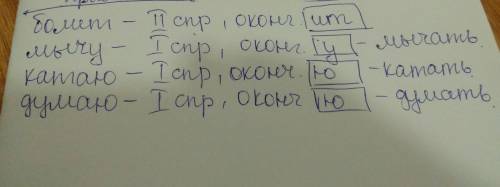 болит – II спр, оконч. ит
мычу – I спр, оконч. у – мычать.
катаю – I спр, оконч. ю – катать
думаю – I спр, оконч ю – думать.